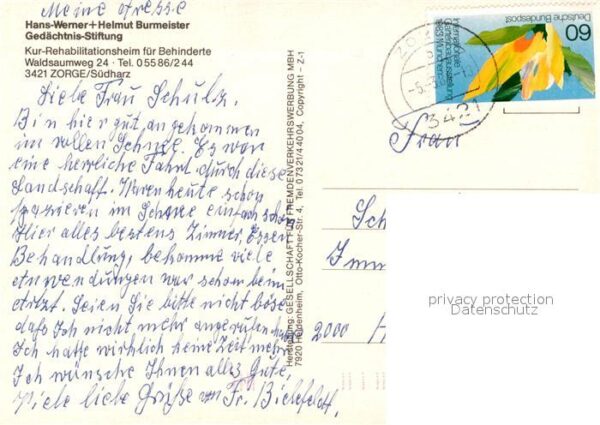 Meine Adresse
Hans-Werner+Helmut Burmeister
Gedächtnis-Stiftung
Kur-Rehabilitationsheim für Behinderte
Waldsaumweg 24 · Tel. 0 55 86/2 44
3421 ZORGE/Südharz
Liebe Frau Schulz.
Bin hier gut angekommen
im vollen Schnee. Es war
eine herrliche Fahrt durch diese
Landschaft. Waren heute schon
spazieren im Schnee einfach schön
Hier alles bestens Zimmer, Essen
Behandlung, bekomme viele
Anwendungen war schon beim
Arzt. Seien Sie bitte nicht böse
daß Ich nicht mehr angerufen
Ich hatte wirklich keine Zeit mehr
Ich wünsche Ihnen alles Gute,
Viele liebe Grüße von Fr. Bielefeldt,
Herstellung: GESELLSCHAFT FÜR FREMDENVERKEHRSWERBUNG MBH
7920 Heidenheim, Otto-Kocher-Str. 4, Tel. 07321/44004, Copyright - Z-1
60
Deutsche Bundespost
Internationale
Gartenbauausstellung
1983 München
ZORGE
3421
Frau
Sch
Imm
2000 H
privacy protection
Datenschutz